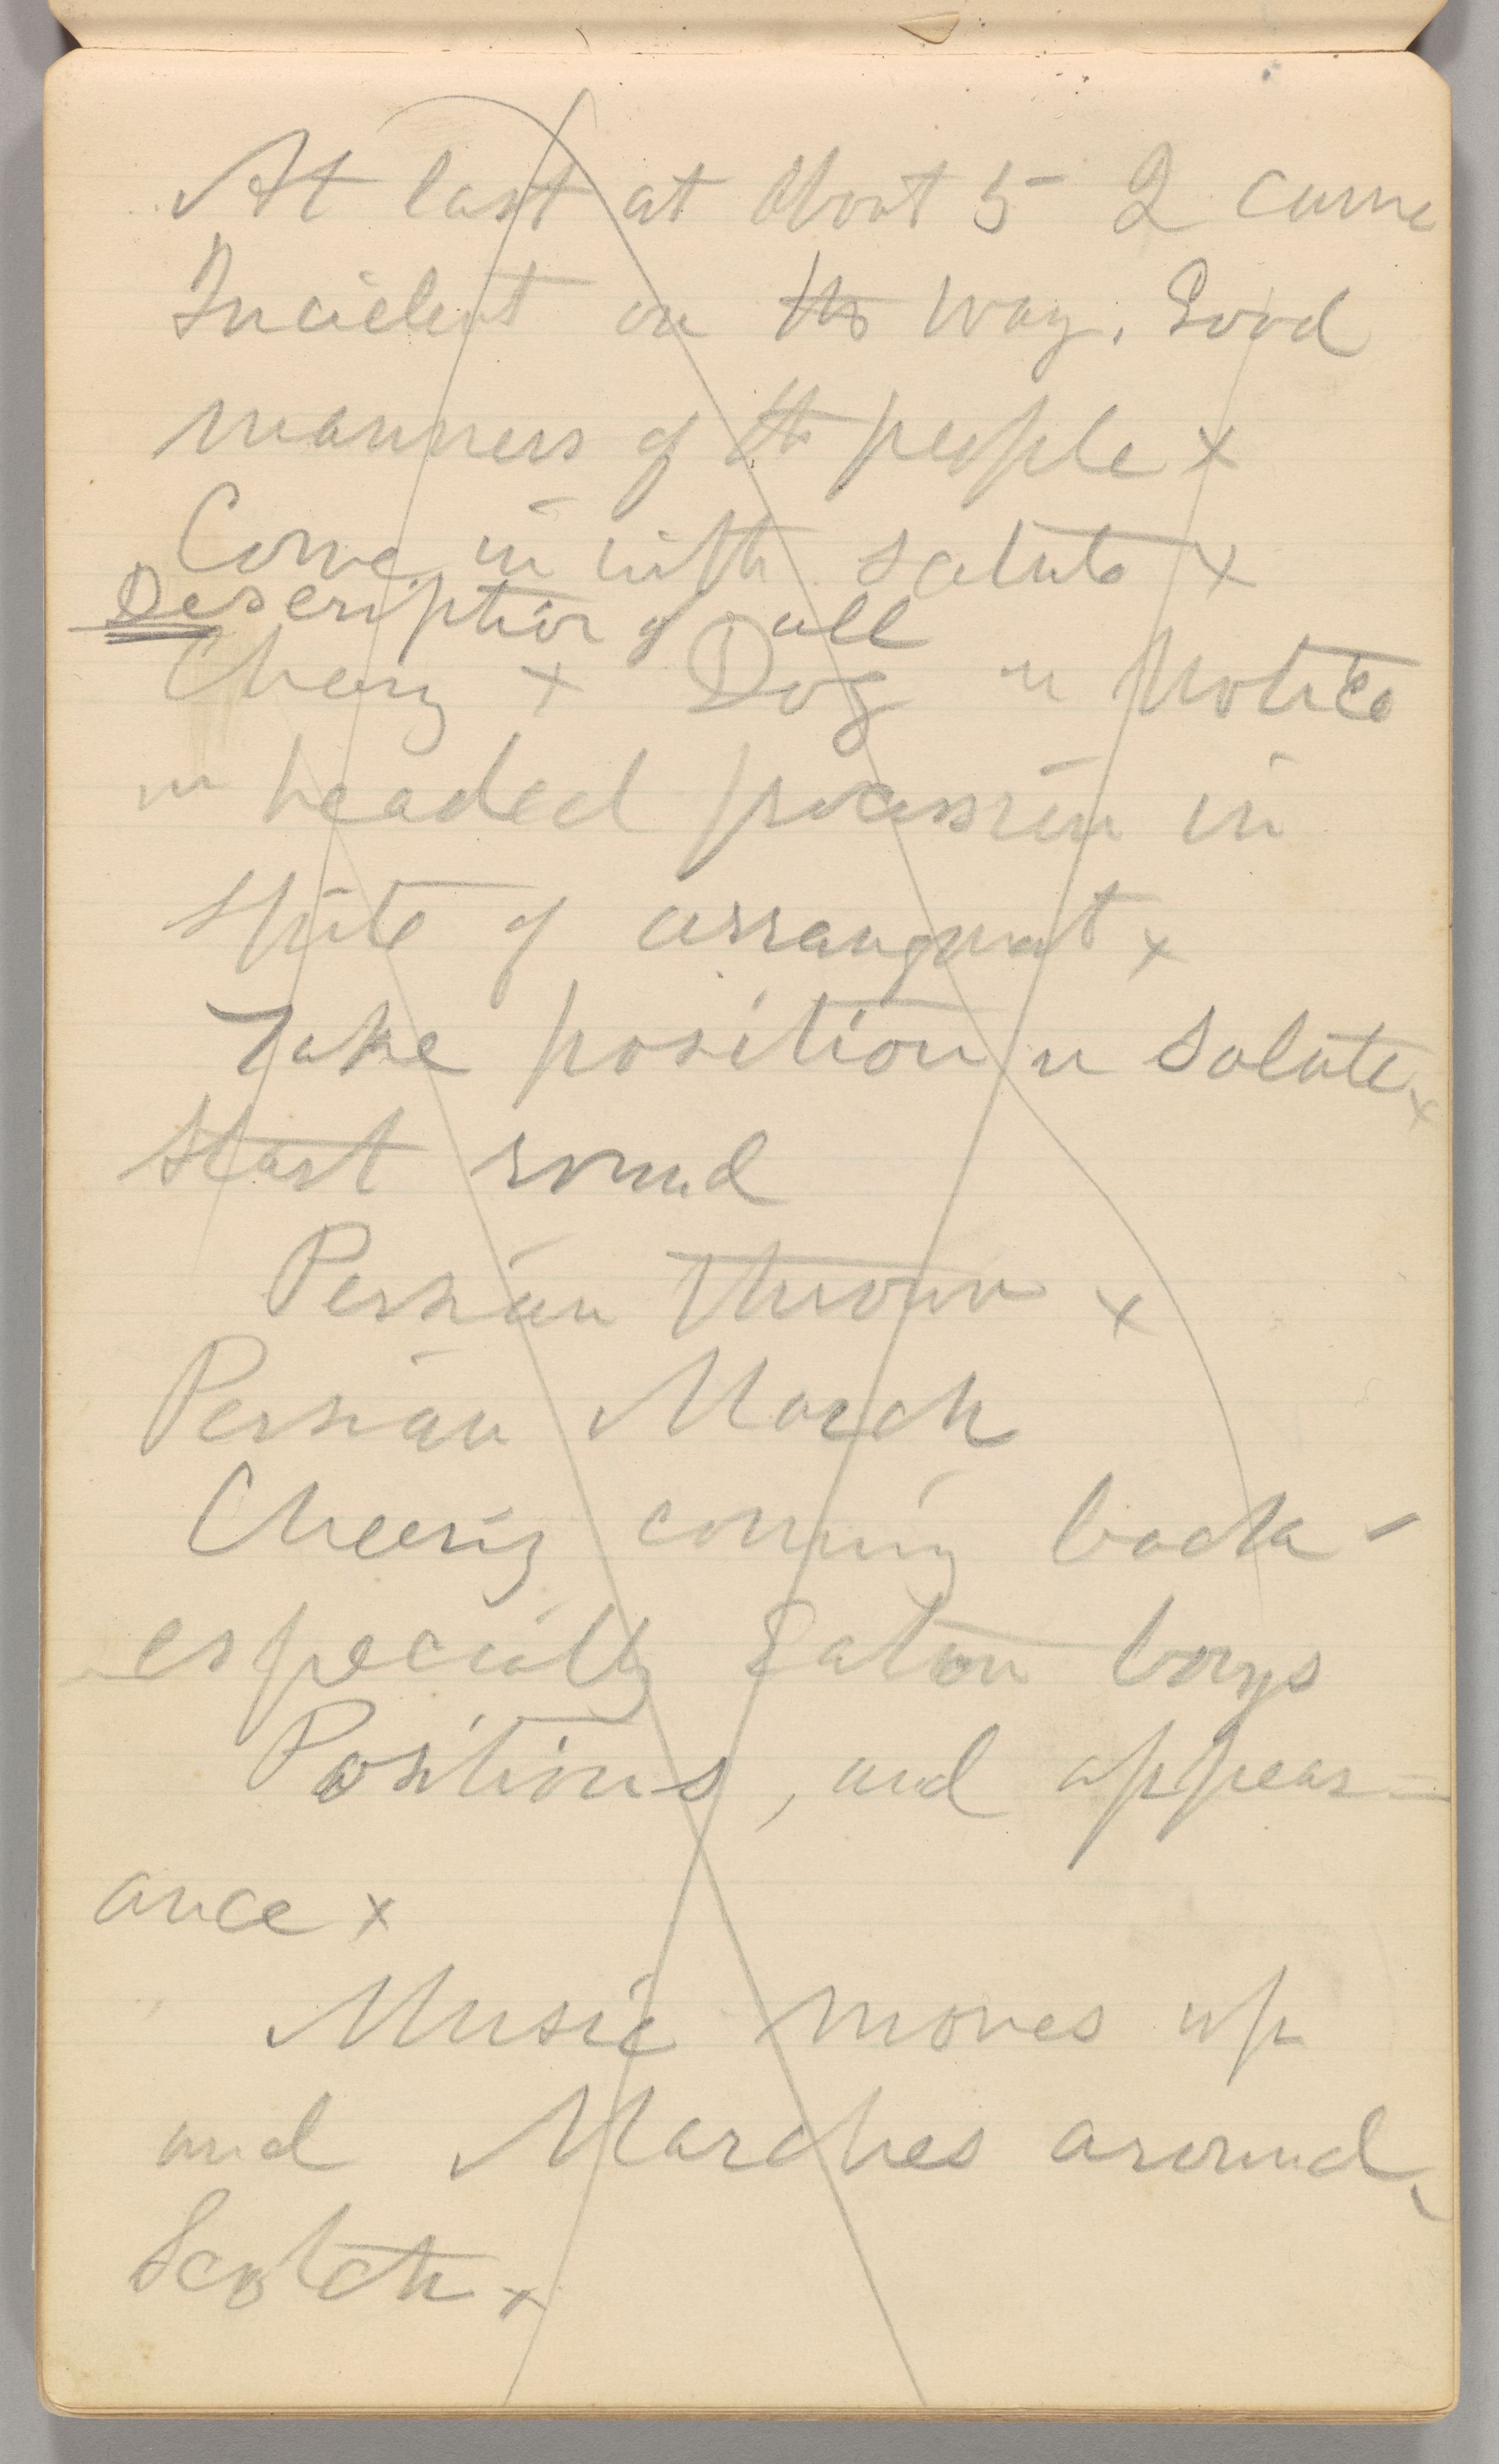 At last at about 5 - Q came
Incident on the way. Good
manners of the people x
Come in with salute x
Description of all
Cheery x Dog " Notice
" headed procession in
spite of arrangmat x
Take position " Salute x
Start round
Persian Thrown x
Persian March
Cheering coming back -
especially Eaton boys
Positions, and appear=
ance x
Music moves up
and Marches around,
Scotch x